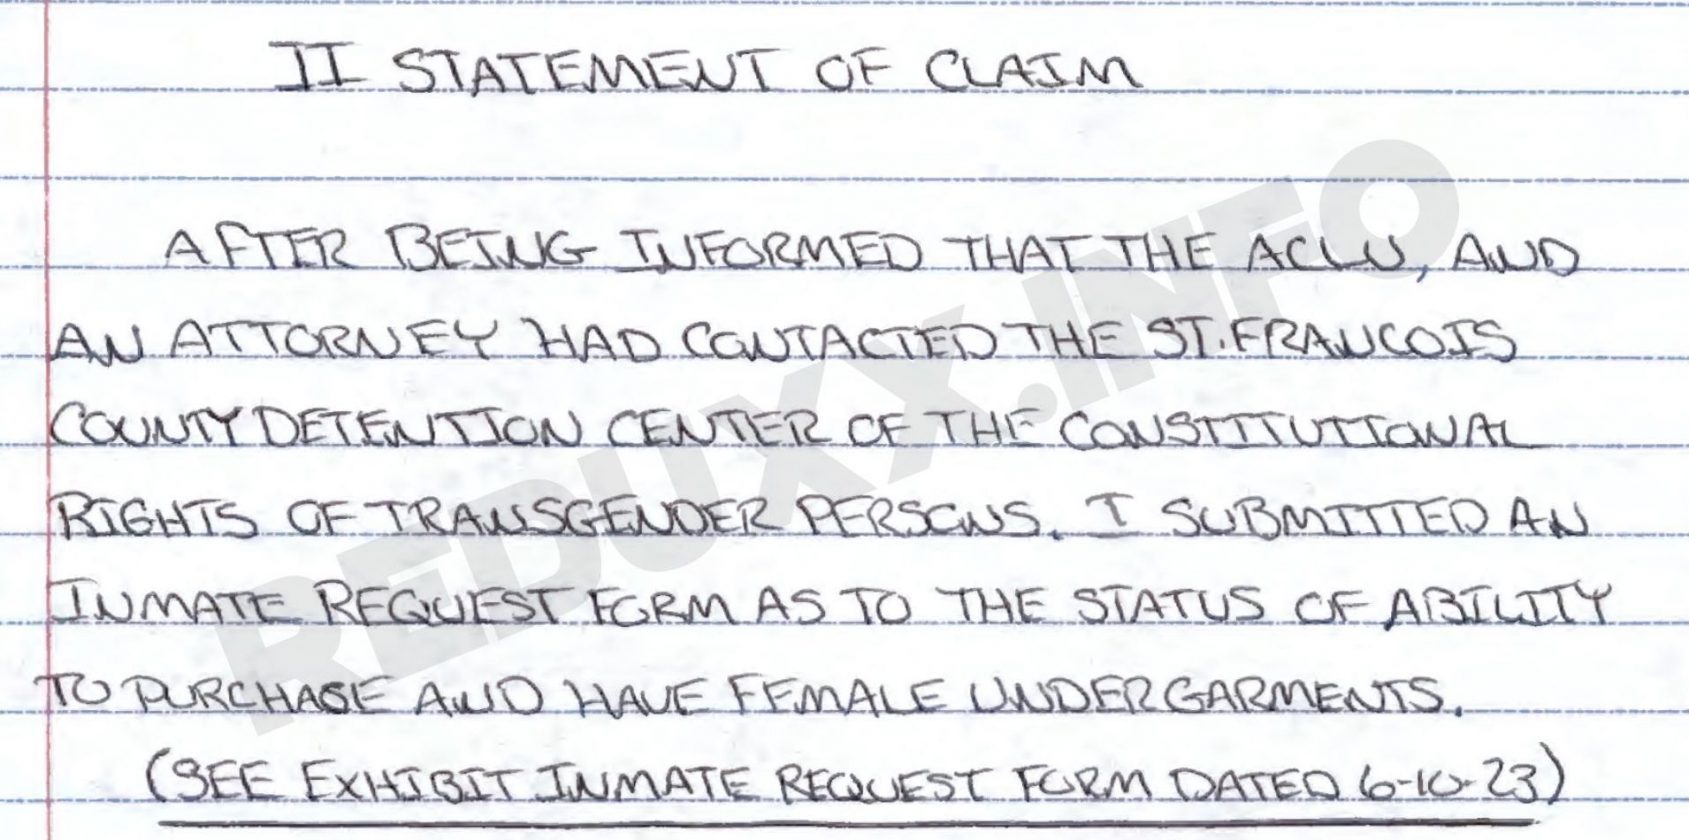 II STATEMENT OF CLAIM
AFTER BEING INFORMED THAT THE ACLU, AND
AN ATTORNEY HAD CONTACTED THE ST. FRANCOIS
COUNTY DETENTION CENTER OF THE CONSTITUTIONAL
RIGHTS OF TRANSGENDER PERSONS. I SUBMITTED AN
INMATE REQUEST FORM AS TO THE STATUS OF ABILITY
TO PURCHASE AND HAVE FEMALE UNDERGARMENTS.
(SEE EXHIBIT INMATE REQUEST FORM DATED 6-10-23)
REDUXX.INFO